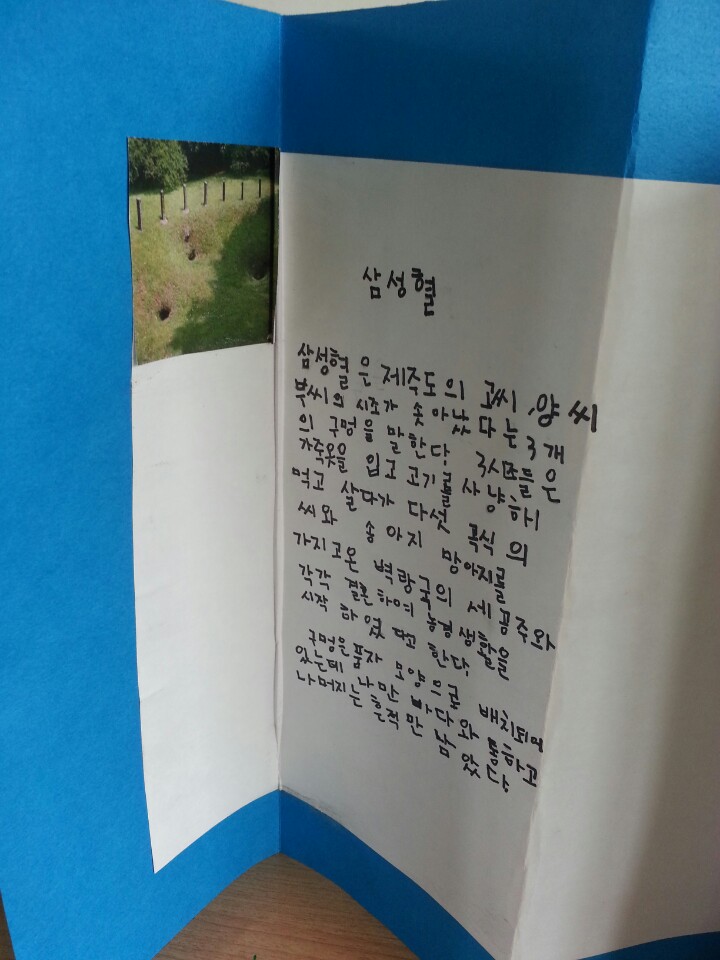 삼성혈
삼성혈은 제주도의 고씨, 양씨
부씨의 시조가 솟아났다는 3개
의 구멍을 말한다. 3시조들은
가죽옷을 입고 고기를 사냥하
먹고 살다가 다섯 곡식의
씨와 송아지 망아지를
가지고온 벽랑국의 세 공주와
각각 결혼하여 농경생활을
시작 하였다고 한다.
구멍은 품자 모양으로 배치되어
있는데 나만 바다와 통하고
나머지는 흔적만 남았다.